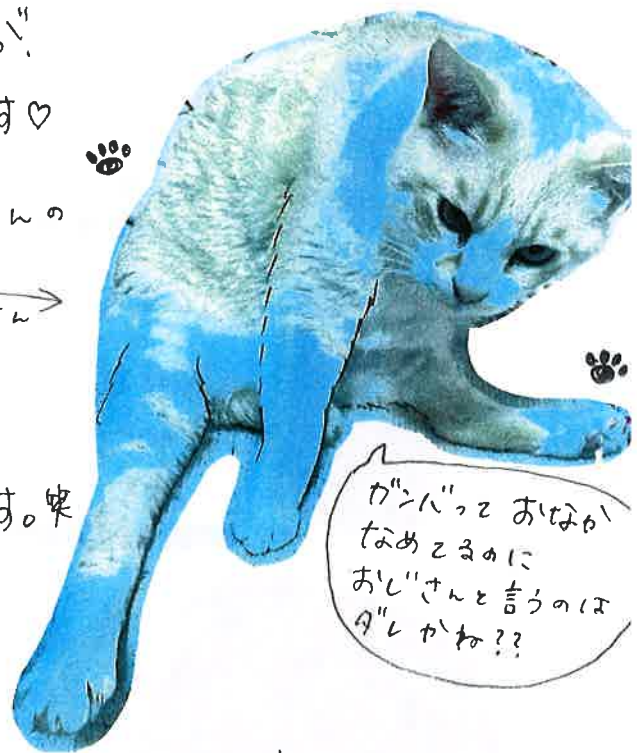 す♡
んの
ん
す。実
ガンバって おなか
なめてるのに
おじさんと言うのは
ダレかね??